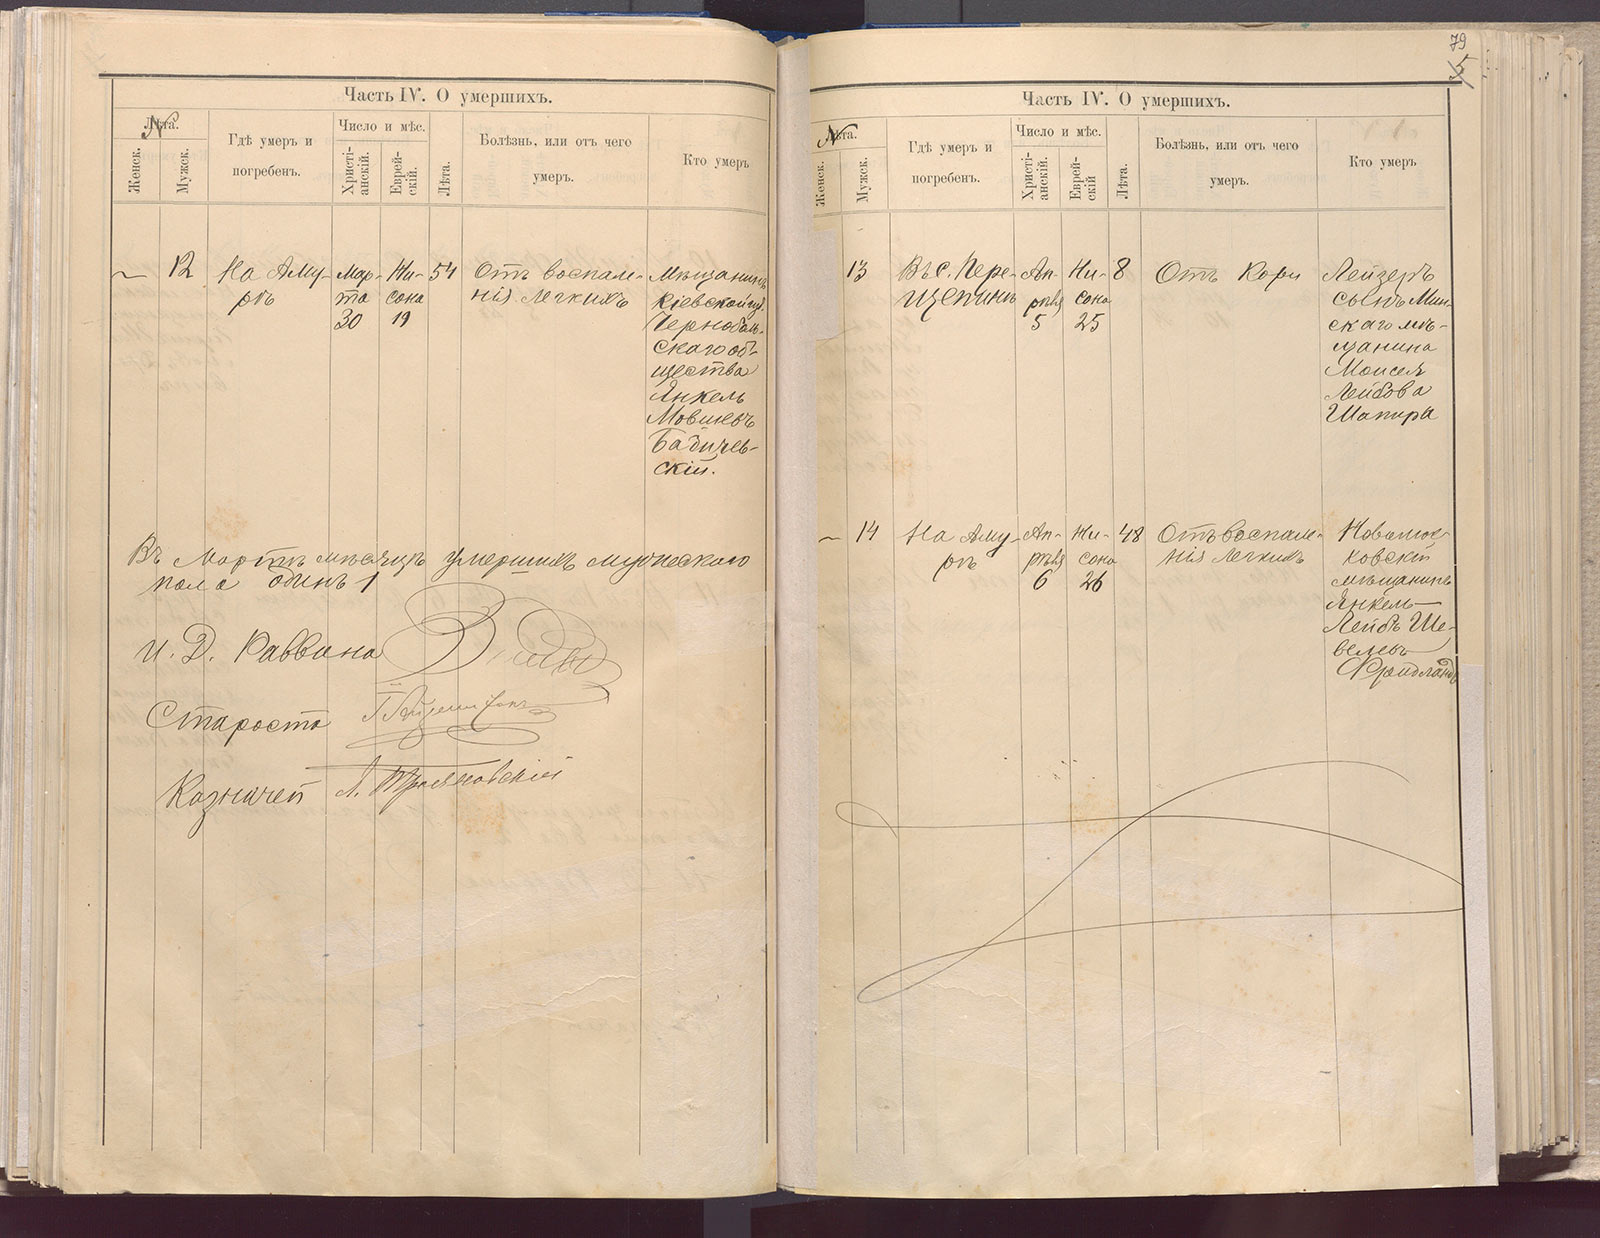 Часть IV. О умершихъ.
Лѣта.
N
Женск.
Мужск.
Гдѣ умеръ и
погребенъ.
Число и мѣс.
Христі-
анскій.
Еврей-
скій.
Лѣта.
Болѣзнь, или отъ чего
умеръ.
Кто умеръ
12
На Аму-
рѣ
Мар-
та
30
Ни-
сона
19
54
Отъ воспале-
нія легкихъ
Мѣщанинъ
Кіевской губ.
Чернобыль-
скаго об-
щества
Янкель
Мовшевъ
Бадичев-
скій.
Въ Мартѣ мѣсяцѣ умершихъ мужескаго
пола одинъ 1
И. Д. Раввина
Староста
Казначей
79
5
Часть IV. О умершихъ.
Лѣта.
N
Женск.
Мужск.
Гдѣ умеръ и
погребенъ.
Число и мѣс.
Христі-
анскій.
Еврей-
скій
Лѣта.
Болѣзнь, или отъ чего
умеръ.
Кто умеръ
13
Въ с. Пере-
щепинѣ
Ап-
рѣля
5
Ни-
сона
25
8
Отъ Кори
Лейзеръ
сынъ Мин-
скаго мѣ-
щанина
Моисея
Лейбова
Шапира
14
На Аму-
рѣ
Ап-
рѣля
6
Ни-
сона
26
48
Отъ воспале-
нія легкихъ
ховскій
мѣщанинъ
Янкель-
Лейбъ Ше-
велевъ
Фридландъ